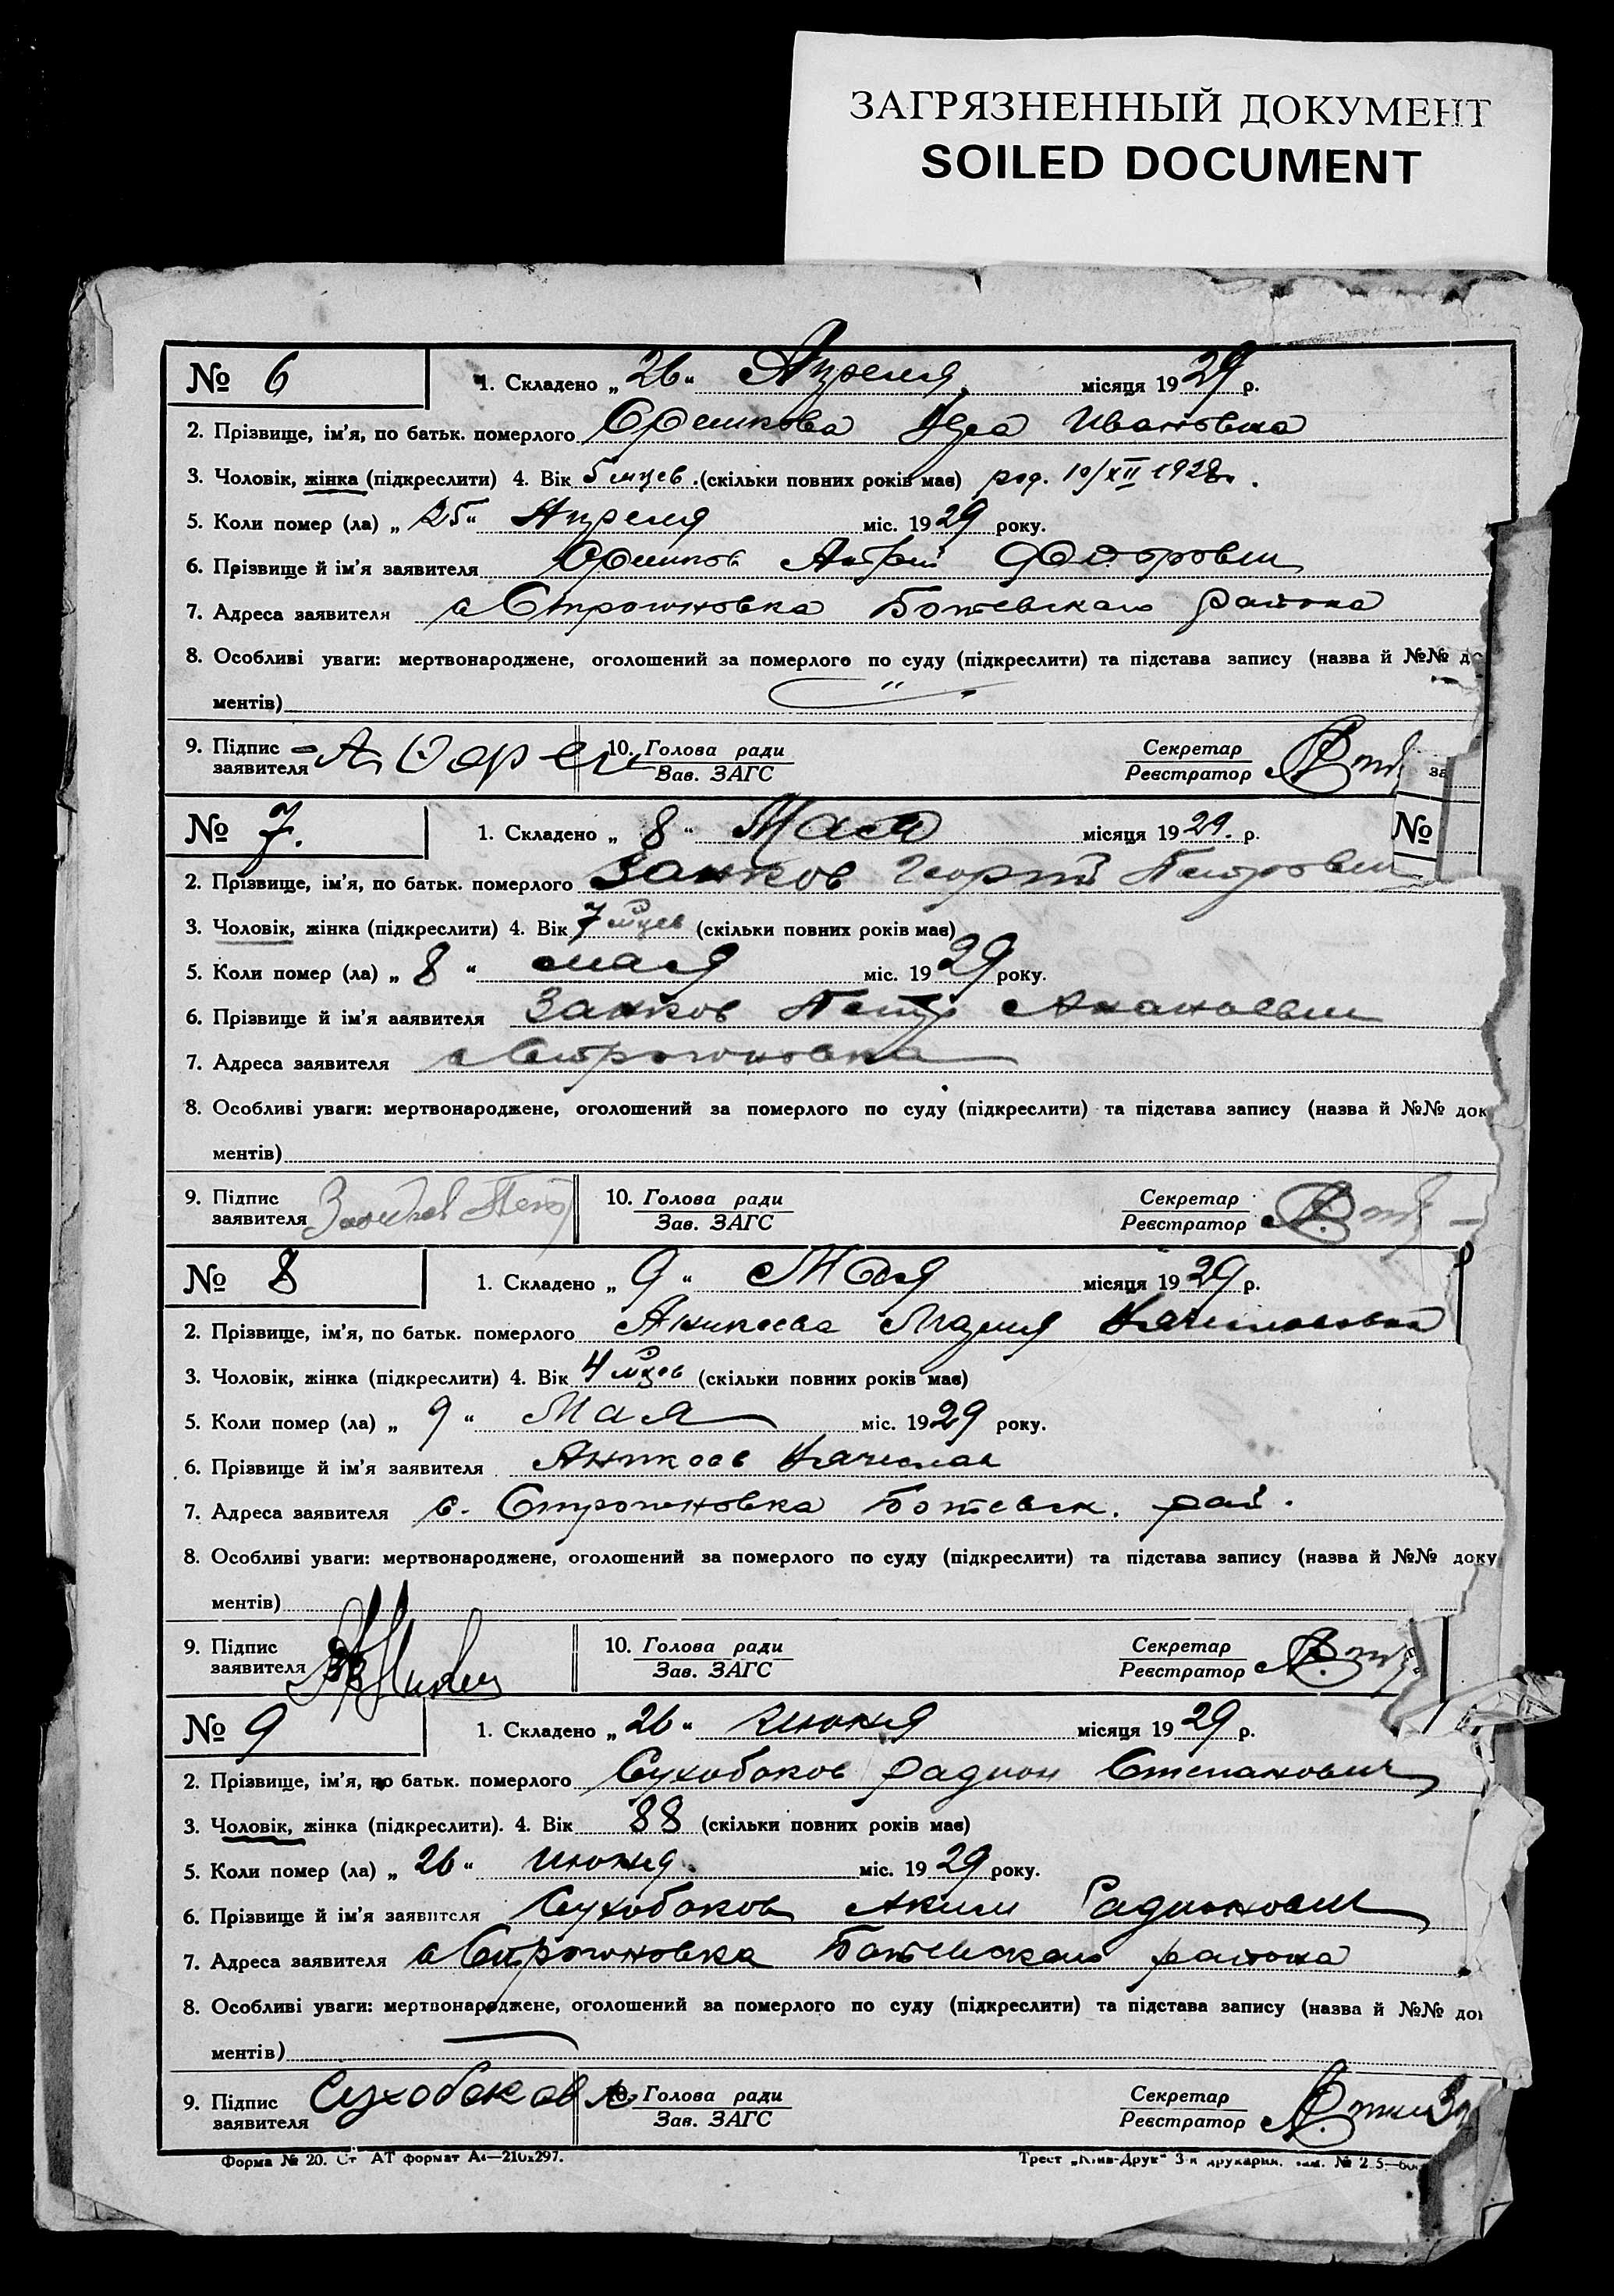 ЗАГРЯЗНЕННЫЙ ДОКУМЕНТ
SOILED DOCUMENT
№ 6 1. Складено „ 26 “ Апреля місяця 1929 р.
2. Прізвище, ім'я, по батьк. померлого Орешкова Ивановна
3. Чоловік, жінка (підкреслити) 4. Вік 5 мцев (скільки повних років має) род. 10/XII 1928 г.
5. Коли помер (ла) „ 25 “ Апреля міс. 1929 року.
6. Прізвище й ім'я заявителя Орешков
7. Адреса заявителя с Строгоновка Ботевского района
8. Особливі уваги: мертвонароджене, оголошений за померлого по суду (підкреслити) та підстава запису (назва й №№ до
ментів)
9. Підпис заявителя 10. Голова ради Зав. ЗАГС Секретар Реєстратор
№ 7. 1. Складено „ 8 “ Мая місяця 1929. р. №
2. Прізвище, ім'я, по батьк. померлого Занков Георгий Петрович
3. Чоловік, жінка (підкреслити) 4. Вік 7 мцев (скільки повних років має)
5. Коли помер (ла) „ 8 “ мая міс. 1929 року.
6. Прізвище й ім'я заявителя Занков Петр Ананьевич
7. Адреса заявителя с Строгоновка
8. Особливі уваги: мертвонароджене, оголошений за померлого по суду (підкреслити) та підстава запису (назва й №№ док
ментів)
9. Підпис заявителя 10. Голова ради Зав. ЗАГС Секретар Реєстратор
№ 8 1. Складено „ 9 “ Мая місяця 1929 р.
2. Прізвище, ім'я, по батьк. померлого Аникеева
3. Чоловік, жінка (підкреслити) 4. Вік 4 мцев (скільки повних років має)
5. Коли помер (ла) „ 9 “ Мая міс. 1929 року.
6. Прізвище й ім'я заявителя Аникеев
7. Адреса заявителя с. Строгоновка Ботевск. рай.
8. Особливі уваги: мертвонароджене, оголошений за померлого по суду (підкреслити) та підстава запису (назва й №№ доку
ментів)
9. Підпис заявителя 10. Голова ради Зав. ЗАГС Секретар Реєстратор
№ 9 1. Складено „ 26 “ июня місяця 1929 р.
2. Прізвище, ім'я, по батьк. померлого Сухобоков Радион Степанович
3. Чоловік, жінка (підкреслити). 4. Вік 88 (скільки повних років має)
5. Коли помер (ла) „ 26 “ июня міс. 1929 року.
6. Прізвище й ім'я заявителя Сухобоков Аким Радионович
7. Адреса заявителя с Строгоновка Ботевского района
8. Особливі уваги: мертвонароджене, оголошений за померлого по суду (підкреслити) та підстава запису (назва й №№ до
ментів)
9. Підпис заявителя Сухобоков 10. Голова ради Зав. ЗАГС Секретар Реєстратор
Форма № 20. Ст АТ формат А4—210x297. Трест „Київ-Друк“